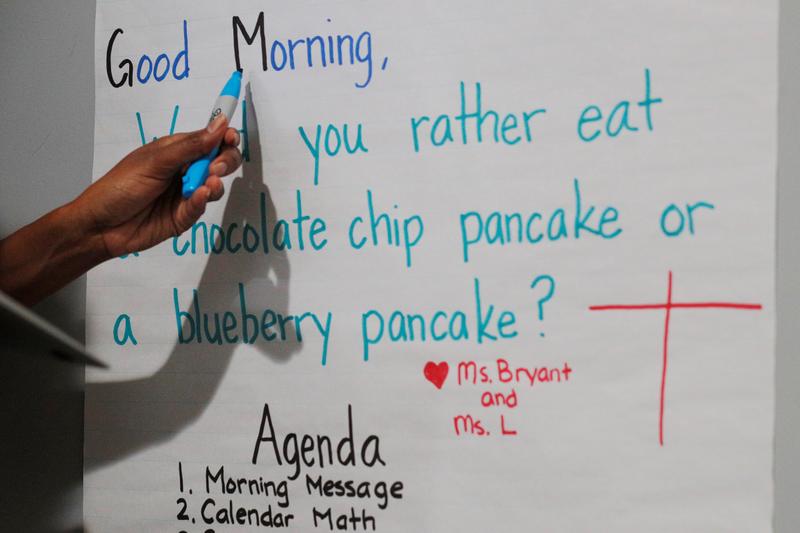 Good Morning,
you rather eat
a chocolate chip pancake or
a blueberry pancake?
♥ Ms. Bryant
and
Ms. L
Agenda
1. Morning Message
2. Calendar Math